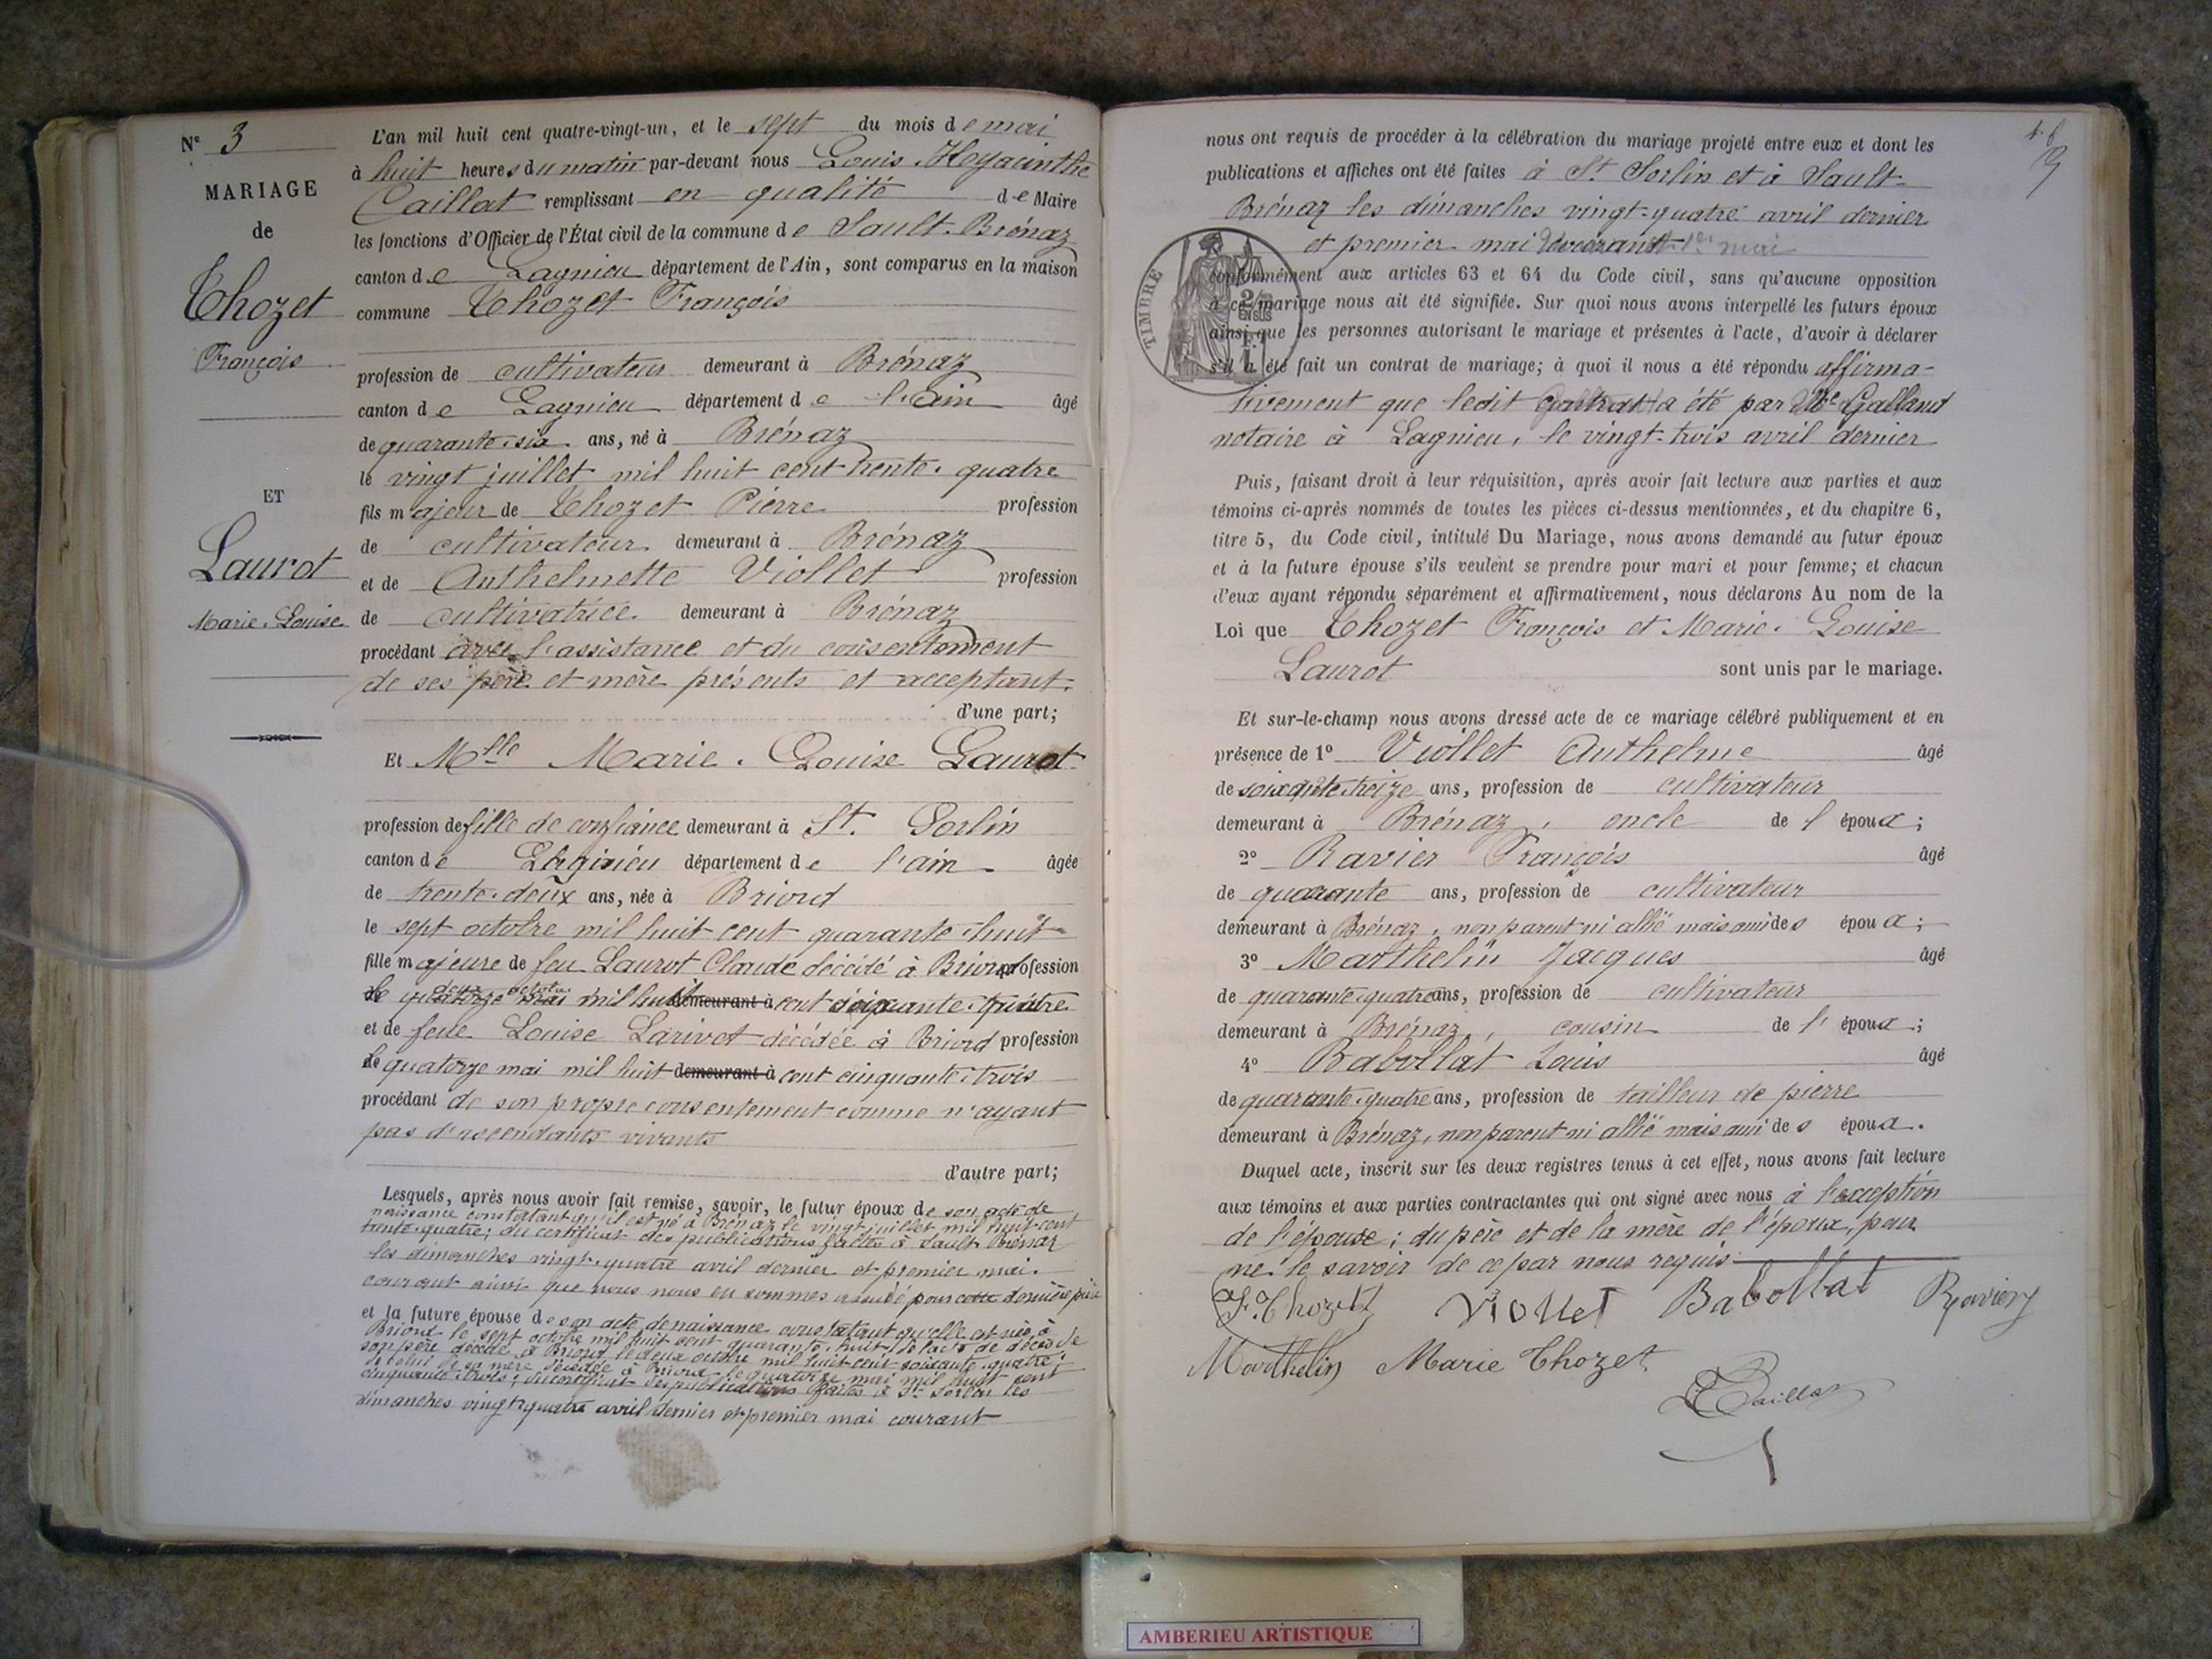 N° 3
MARIAGE
de
Thozet
François
ET
Laurot
Marie-Louise
L'an mil huit cent quatre-vingt-un, et le sept du mois de mai
à huit heures du matin par-devant nous Louis Hyacinthe
Caillat remplissant en qualité de Maire
les fonctions d'Officier de l'État civil de la commune de Sault-Brénaz
canton de Lagnieu département de l'Ain, sont comparus en la maison
commune Thozet François
profession de cultivateur demeurant à Brénaz
canton de Lagnieu département de l'Ain âgé
de quarante-six ans, né à Brénaz
le vingt juillet mil huit cent trente-quatre
fils majeur de Thozet Pierre profession
de cultivateur demeurant à Brénaz
et de Anthelmette Viollet profession
de cultivatrice demeurant à Brénaz
procédant avec l'assistance et du consentement
de ses père et mère présents et acceptant.
d'une part;
Et Mlle Marie-Louise Laurot
profession de fille de confiance demeurant à St. Sorlin
canton de Lagnieu département de l'ain âgée
de trente-deux ans, née à Briord
le sept octobre mil huit cent quarante-huit
fille majeure de feu Laurot Claude décédé à Briord profession
le deux octobre mil huit demeurant à cent soixante-quatre
et de feue Louise Larivot décédée à Briord profession
le quatorze mai mil huit demeurant à cent cinquante-trois
procédant de son propre consentement comme n'ayant
pas d'ascendants vivants
d'autre part;
Lesquels, après nous avoir fait remise, savoir, le futur époux de son acte de
naissance constatant qu'il est né à Brénaz le vingt juillet mil huit cent
trente-quatre; du certificat des publications faites à Sault-Brénaz
les dimanches vingt-quatre avril dernier et premier mai
courant ainsi que nous nous en sommes assuré pour cette dernière pièce
et la future épouse de son acte de naissance constatant qu'elle est née à
Briord le sept octobre mil huit cent quarante-huit; de l'acte de décès de
son père décédé à Briord le deux octobre mil huit cent soixante-quatre;
de celui de sa mère décédée à Briord le quatorze mai mil huit cent
cinquante-trois; du certificat des publications faites à St Sorlin les
dimanches vingt-quatre avril dernier et premier mai courant
nous ont requis de procéder à la célébration du mariage projeté entre eux et dont les
publications et affiches ont été faites à St. Sorlin et à Sault-
Brénaz les dimanches vingt-quatre avril dernier
et premier mai courant
conformément aux articles 63 et 64 du Code civil, sans qu'aucune opposition
à ce mariage nous ait été signifiée. Sur quoi nous avons interpellé les futurs époux
ainsi que les personnes autorisant le mariage et présentes à l'acte, d'avoir à déclarer
s'il a été fait un contrat de mariage; à quoi il nous a été répondu affirma-
tivement que ledit contrat a été par Me Galland
notaire à Lagnieu, le vingt-trois avril dernier
TIMBRE
Puis, faisant droit à leur réquisition, après avoir fait lecture aux parties et aux
témoins ci-après nommés de toutes les pièces ci-dessus mentionnées, et du chapitre 6,
titre 5, du Code civil, intitulé Du Mariage, nous avons demandé au futur époux
et à la future épouse s'ils veulent se prendre pour mari et pour femme; et chacun
d'eux ayant répondu séparément et affirmativement, nous déclarons Au nom de la
Loi que Thozet François et Marie-Louise
Laurot sont unis par le mariage.
Et sur-le-champ nous avons dressé acte de ce mariage célébré publiquement et en
présence de 1° Viollet Anthelme âgé
de soixante-treize ans, profession de cultivateur
demeurant à Brénaz, oncle de l'époux;
2° Ravier François âgé
de quarante ans, profession de cultivateur
demeurant à Brénaz, non parent ni allié mais ami des époux;
3° Marthelin Jacques âgé
de quarante-quatre ans, profession de cultivateur
demeurant à Brénaz, cousin de l'époux;
4° Babollat Louis âgé
de quarante-quatre ans, profession de tailleur de pierre
demeurant à Brénaz, non parent ni allié mais ami des époux.
Duquel acte, inscrit sur les deux registres tenus à cet effet, nous avons fait lecture
aux témoins et aux parties contractantes qui ont signé avec nous à l'exception
de l'épouse; du père et de la mère de l'époux, pour
ne le savoir de ce par nous requis
F. Thozet Viollet Babollat Ravier
Marthelin Marie Thozet
Caillat
AMBERIEU ARTISTIQUE